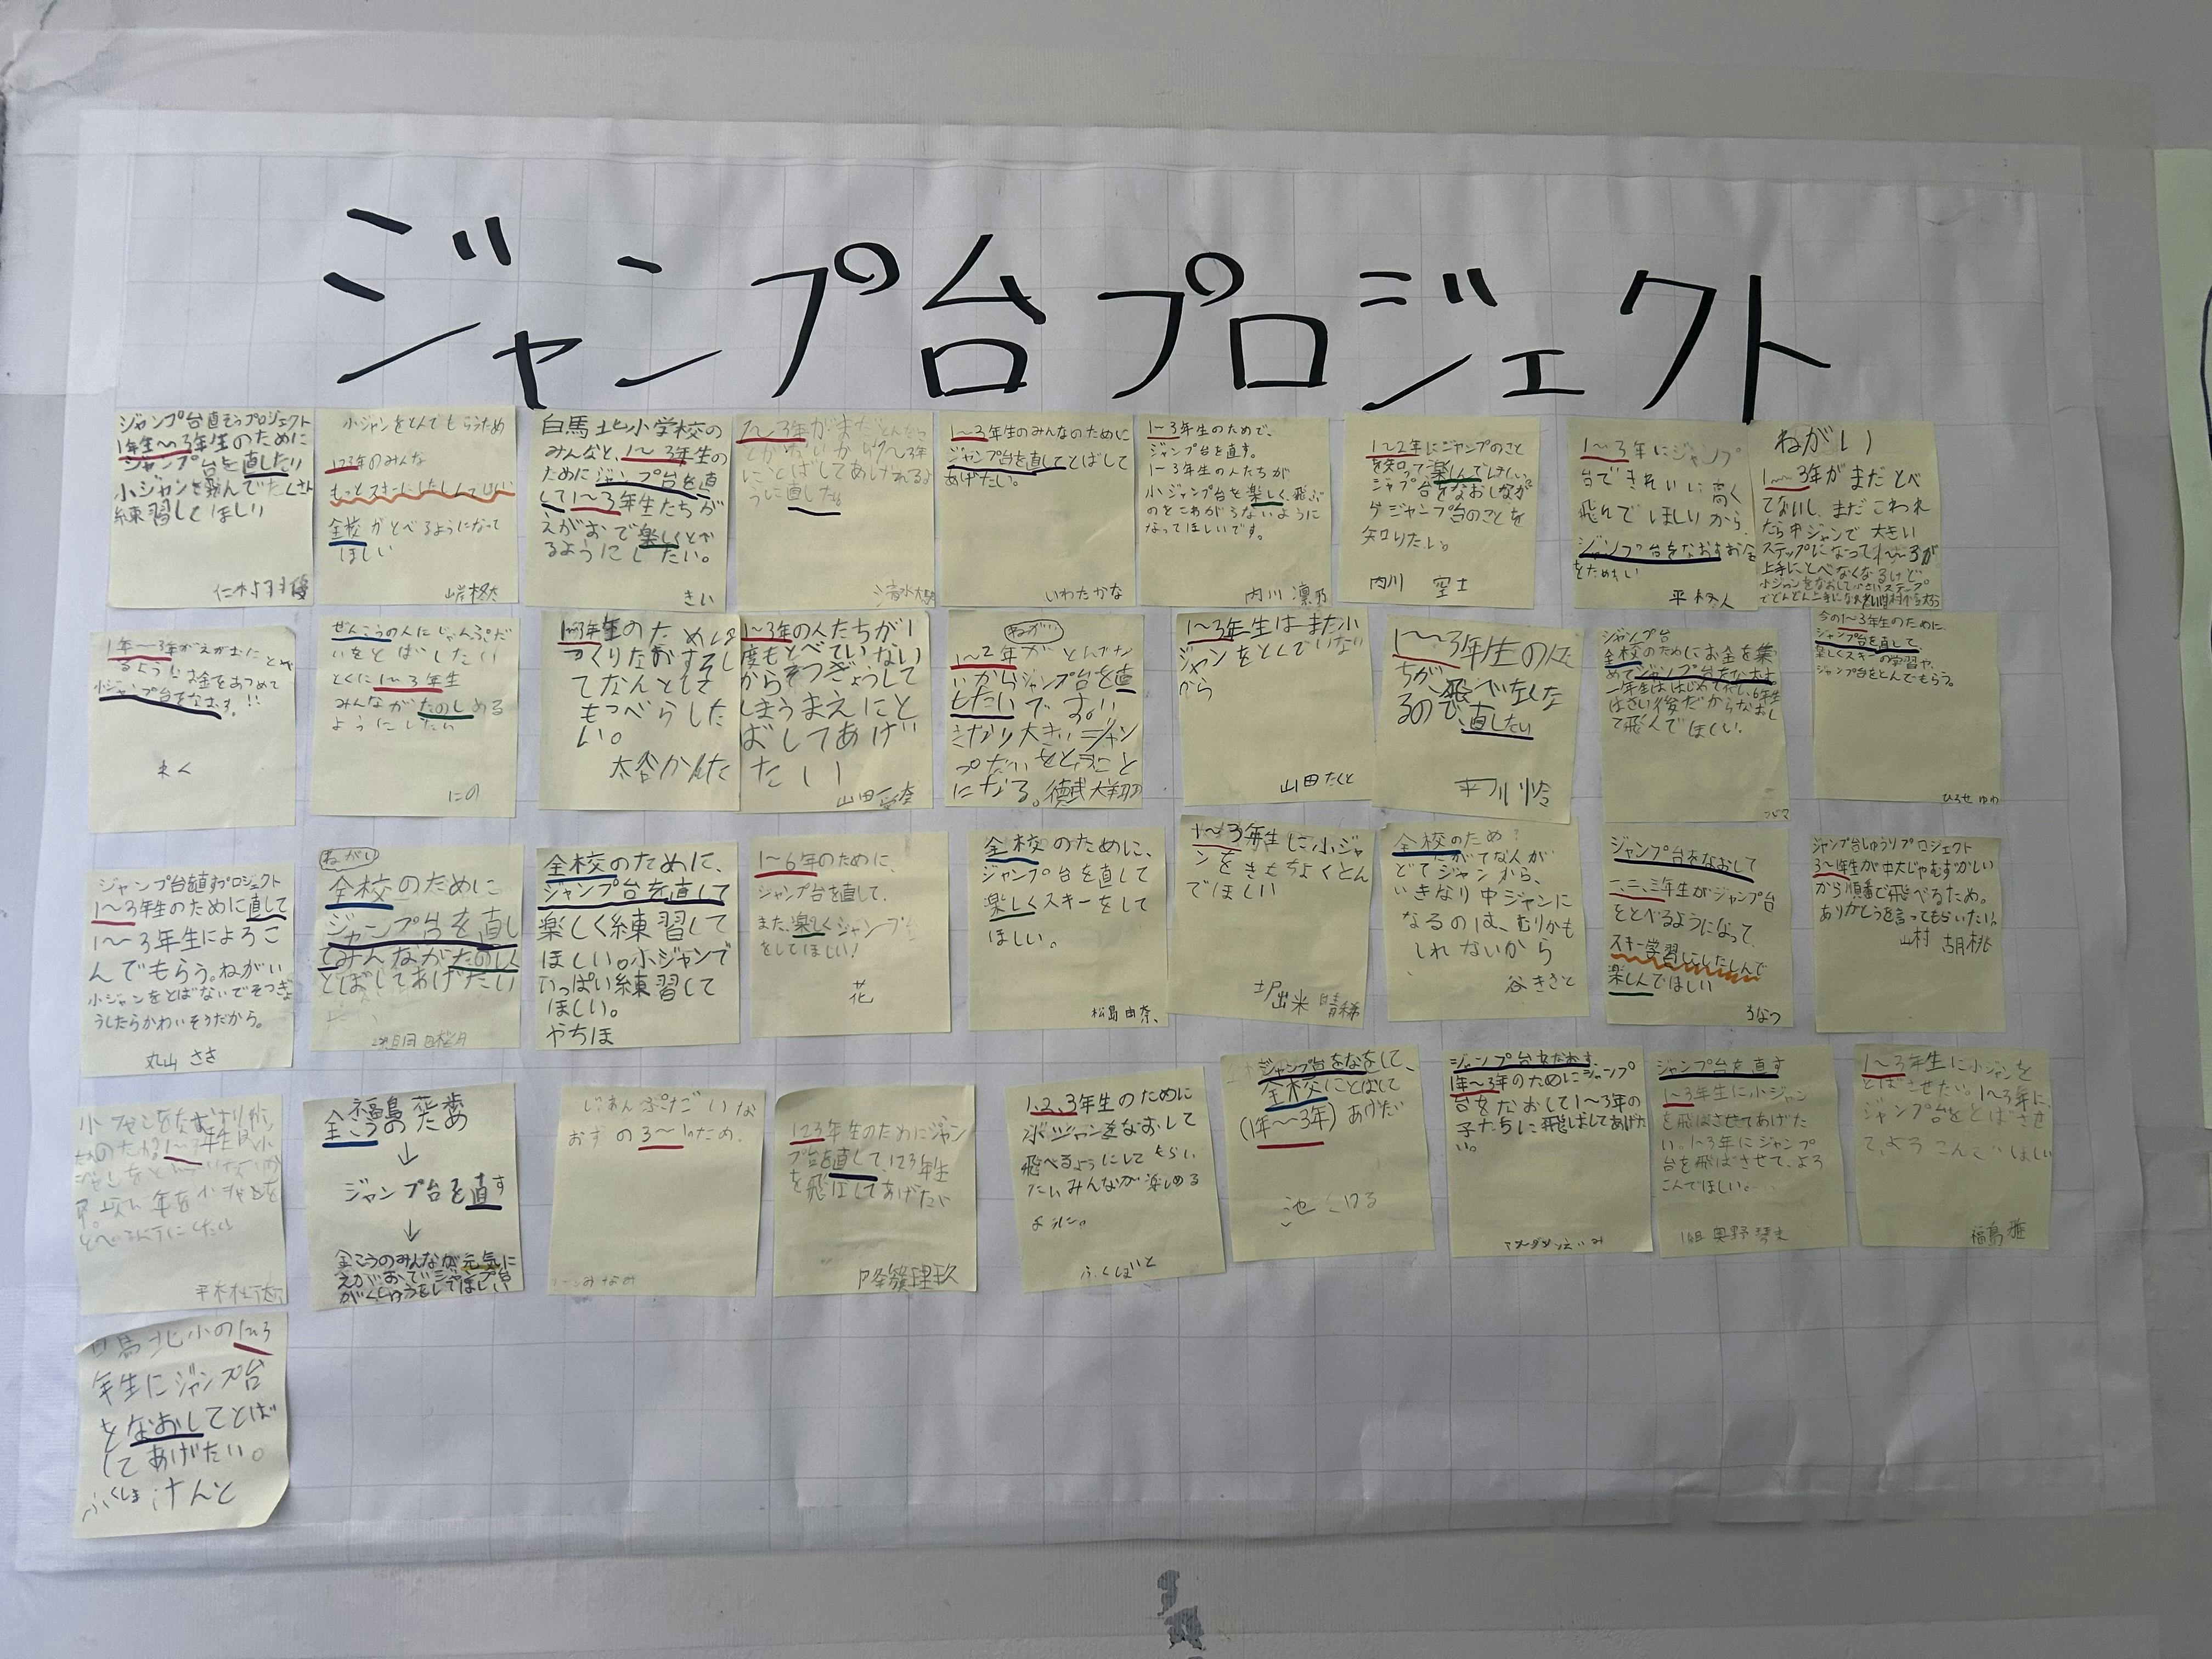 ジャンプ台プロジェクト
ジャンプ台直そうプロジェクト
1年生〜3年生のために
ジャンプ台を直したい
小ジャンを飛んでたくさん
練習してほしい
小ジャンをとんでもらうため
123年のみんな
もっとスキーにしたしんでほしい
全校がとべるようになって
ほしい
白馬北小学校の
みんなと、1〜3年生の
ためにジャンプ台を直
して1〜3年生たちが
えがおで楽しくとべ
るようにしたい。
きい
1〜3年がまだとんでなく
にとばしてあげれるよ
うに直したい
1〜3年生のみんなのために
ジャンプ台を直してとばして
あげたい。
いわたかな
1〜3年生のためで、
ジャンプ台を直す。
1〜3年生の人たちが
小ジャンプ台を楽しく、飛ぶ
のをこわがらないように
なってほしいです。
内川 凛乃
1〜2年にジャンプのこと
を知って楽しんでほしい。
ジャンプ台をなおしなが
ジャンプ台のことを
知りたい。
内川 空士
1〜3年にジャンプ
台できれいに高く
飛んでほしいから
ジャンプ台をなおすお金
をためたい
ねがい
1〜3年がまだとべ
てないし、まだこわれ
たら中ジャンで大きい
ステップになって1〜3が
上手にとべなくなるけど
1年〜3年がえがおにとべ
るようにお金をあつめて
小ジャンプ台をなおす。!!
れく
ぜんこうの人にじゃんぷだ
いをとばしたい
とくに1〜3年生
みんながたのしめる
ようにしたい
にの
1〜3年生のためにつ
くりなおすそし
てなんとしても
い。
太谷かんた
1〜3年の人たちが1
度もとべていない
からそつぎょうして
しまうまえにと
ばしてあげ
たい
1〜2年がとんでな
いからジャンプ台を直
したいです。い
きなり大きいジャン
プだいをとぶこと
になる。
1〜3年生はまだ小
ジャンをとんでいない
から
山田たくと
1〜3年生の人た
ちが飛べなくな
るので、直したい
平川 怜
ジャンプ台
全校のためにお金を集
めてジャンプ台をなおす
一年生ははじめてだし、6年生
はさい後だからなおし
て飛んでほしい。
今の1〜3年生のために
ジャンプ台を直して、
楽しくスキーの学習や、
ジャンプ台をとんでもらう。
ひろせ ゆわ
ジャンプ台を直すプロジェクト
1〜3年生のために直して
1〜3年生によろこ
んでもらう。ねがい
小ジャンをとばないでそつぎょ
うしたらかわいそうだから。
丸山 さき
ねがい
全校のために
ジャンプ台を直し
てみんながたのしく
とばしてあげたい
全校のために、
ジャンプ台を直して
楽しく練習して
ほしい。小ジャンで
いっぱい練習して
ほしい。
やちほ
1〜6年のために、
ジャンプ台を直して、
また、楽しくジャンプ台
をしてほしい!
花
全校のために、
ジャンプ台を直して
楽しくスキーをして
ほしい。
松島由奈、
1〜3年生に小ジャ
ンをきもちよくとん
でほしい
全校のため
にがてな人が
でてジャンから、
いきなり中ジャンに
なるのは、むりかも
しれないから
谷 きさと
ジャンプ台をなおして
一、二、三年生がジャンプ台
をとべるようになって、
スキー学習にしたしんで
楽しんでほしい
ジャンプ台しゅうりプロジェクト
3〜1年生が中大じゃむずかしい
から順番で飛べるため。
ありがとうを言ってもらいたい。
山村 胡桃
福島 花歩
全こうのため
↓
ジャンプ台を直す
↓
全こうのみんなが元気に
えがおでジャンプ台
がくしゅうをしてほしい
じゃんぷだいな
おすの3〜1のため、
123年生のためにジャン
プ台を直して、123年生
を飛ばしてあげたい
1、2、3年生のために
小ジャンをなおして
飛べるようにしてもらい
たい みんなが楽しめる
ように。
ふくしまいと
ジャンプ台をなをして、
全校にとばして
(1年〜3年) あげたい
ジャンプ台をなおす、
1年〜3年のためにジャンプ
台をなおして1〜3年の
子たちに飛ばしてあげた
い。
ジャンプ台を直す
1〜3年生に小ジャン
を飛ばさせてあげた
い。1〜3年にジャンプ
台を飛ばさせて、よろ
こんでほしい。
1〜3年生に小ジャンを
とばさせたい。1〜3年に、
ジャンプ台をとばさせ
て、よろこんでほしい
福島 雅
白馬北小の1〜3
年生にジャンプ台
をなおしてとば
してあげたい。
ふくしま けんと